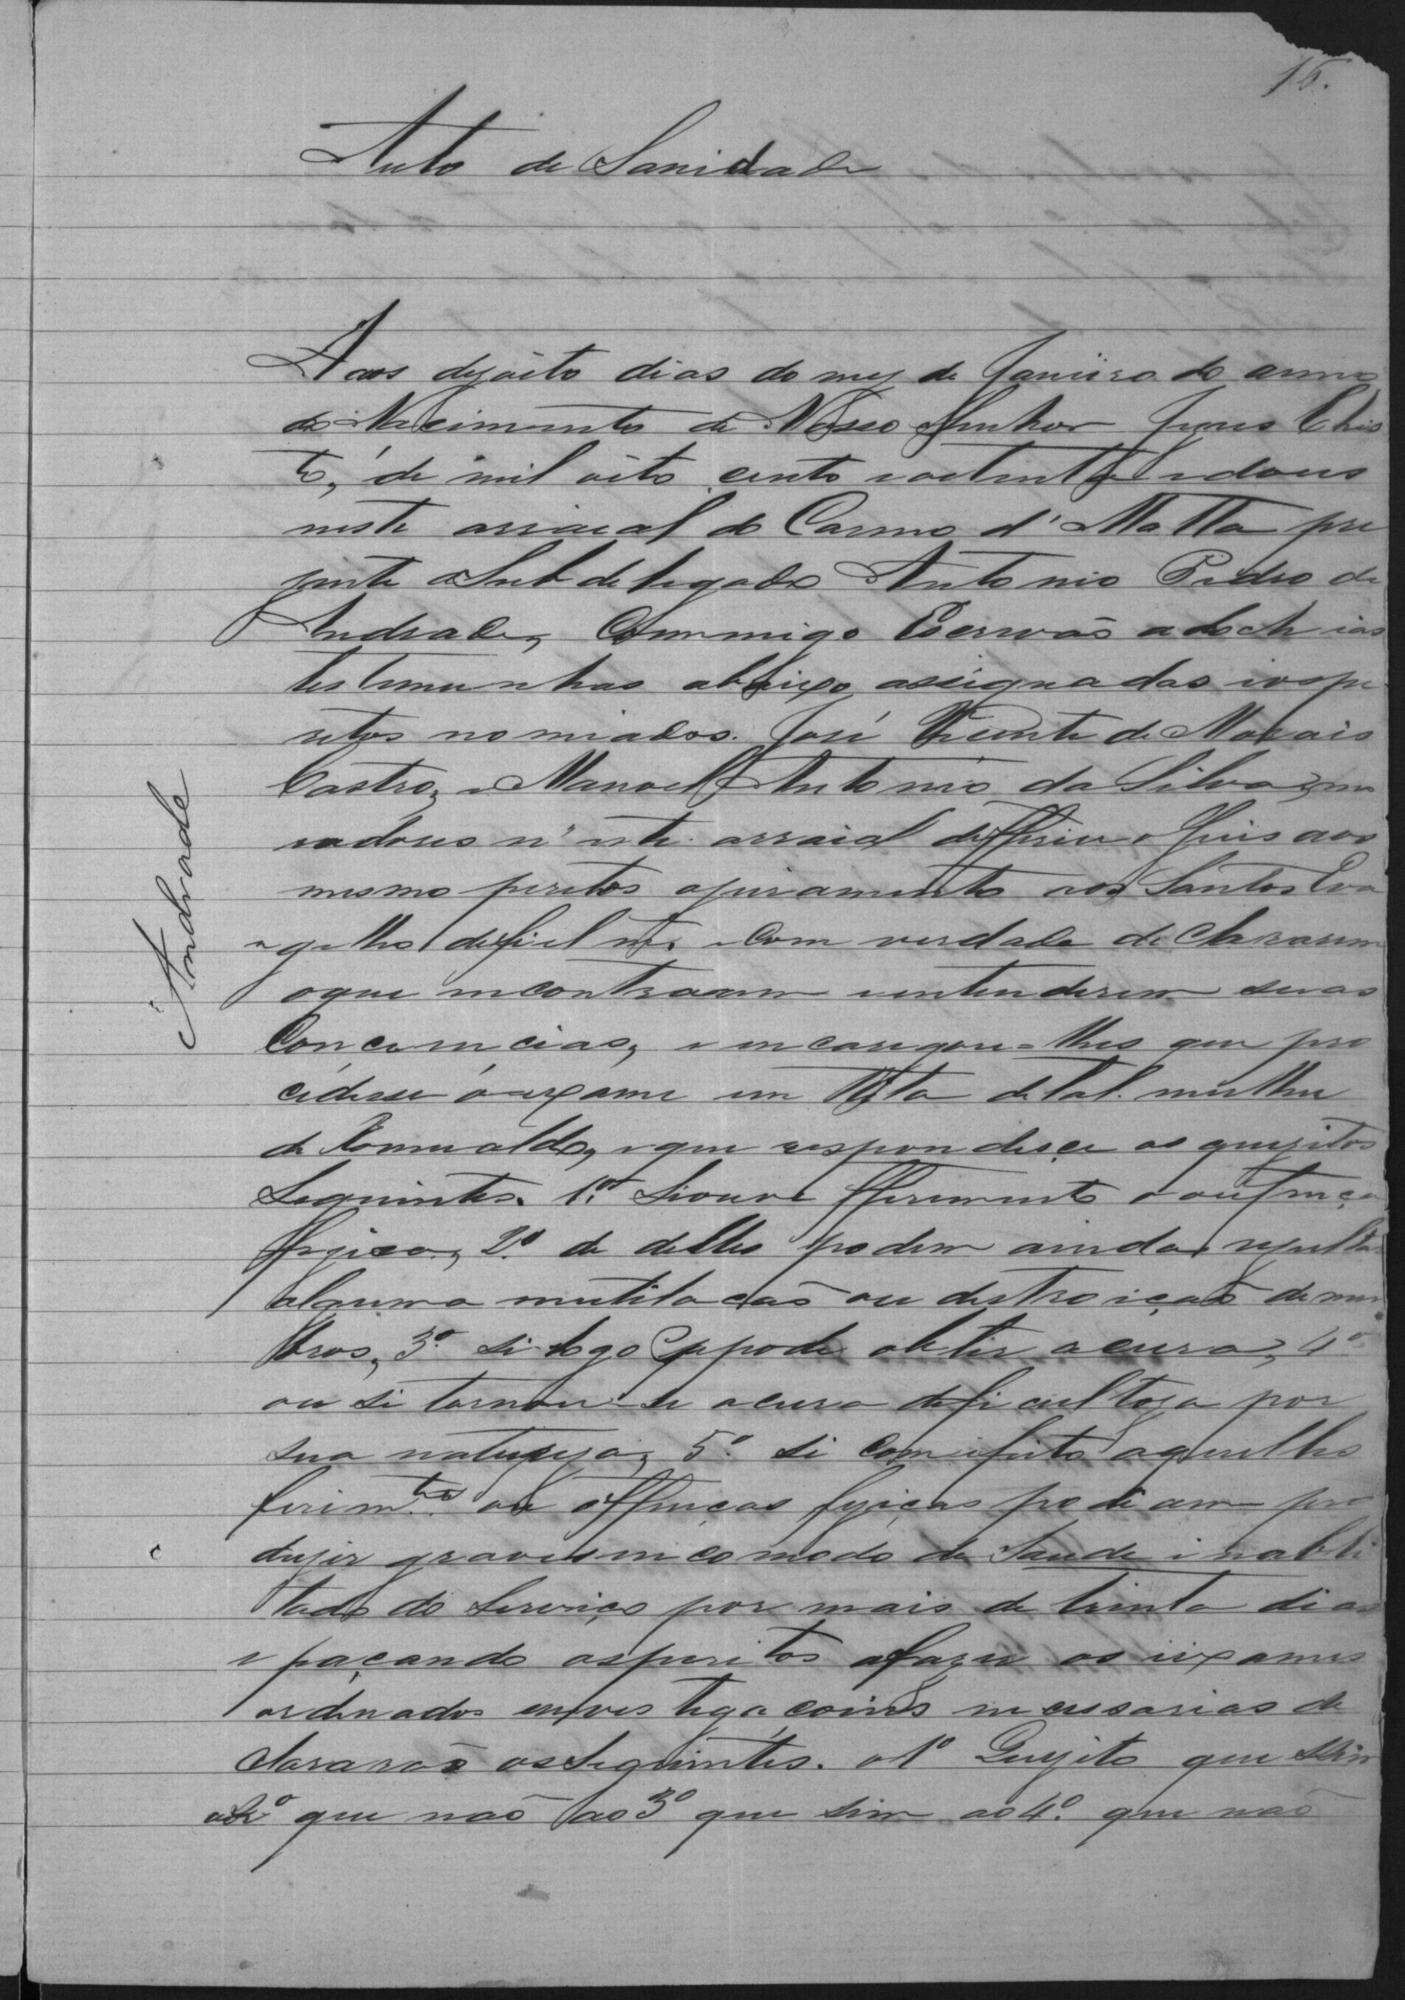 16.
Auto de Sanidade
Aos dezoito dias do mez de Janeiro do anno
do Nacimento de Nosso Senhor Jezus Chris
to, de mil oito cento e oitenta e dous
neste arraial do Carmo d'Matta pre
zente o Sub delegado Antonio Pedro de
Andrade, Commigo Escrivão
testemunhas abaixo assignadas e os pe
ritos nomiados. José Vicente de Morais
Castro, e Manoel Antonio da Silva, mo
radores n'este arraial defferiu o Juis aos
mesmo peritos ajuramento aos Santos Eva
ngelho de fiel me. e com verdade declararem
o que incontraram e entenderem suas
Conciencias, e incaregou-lhes que pro
cidesse ó eixame em Rita de tal. mulher
de Romualdo, e que respondesce os quezitos
Seguintes. 1.º Si ouve fferimento o oufença
fizica, 2.º de delles podem ainda rezultar
alguma mutilacão ou distroição de mem
bros, 3.º si logo pode obtir a cura, 4.º
ou si tornou-se a cura dificultoza por
sua natureza, 5.º si com efeito aquelles
ferim.tos ou offenças fizicas podiam pro
duzir graves incomodo de saude inabli
tado do Serviço por mais de trinta dias
e paçando os peritos a fazer os eixames
ordenados envestigacoins necessarias de
clararão os Seguintes. o 1º Quezito que sim
ao 2.º que não ao 3º que sim ao 4.º que não
Andrade